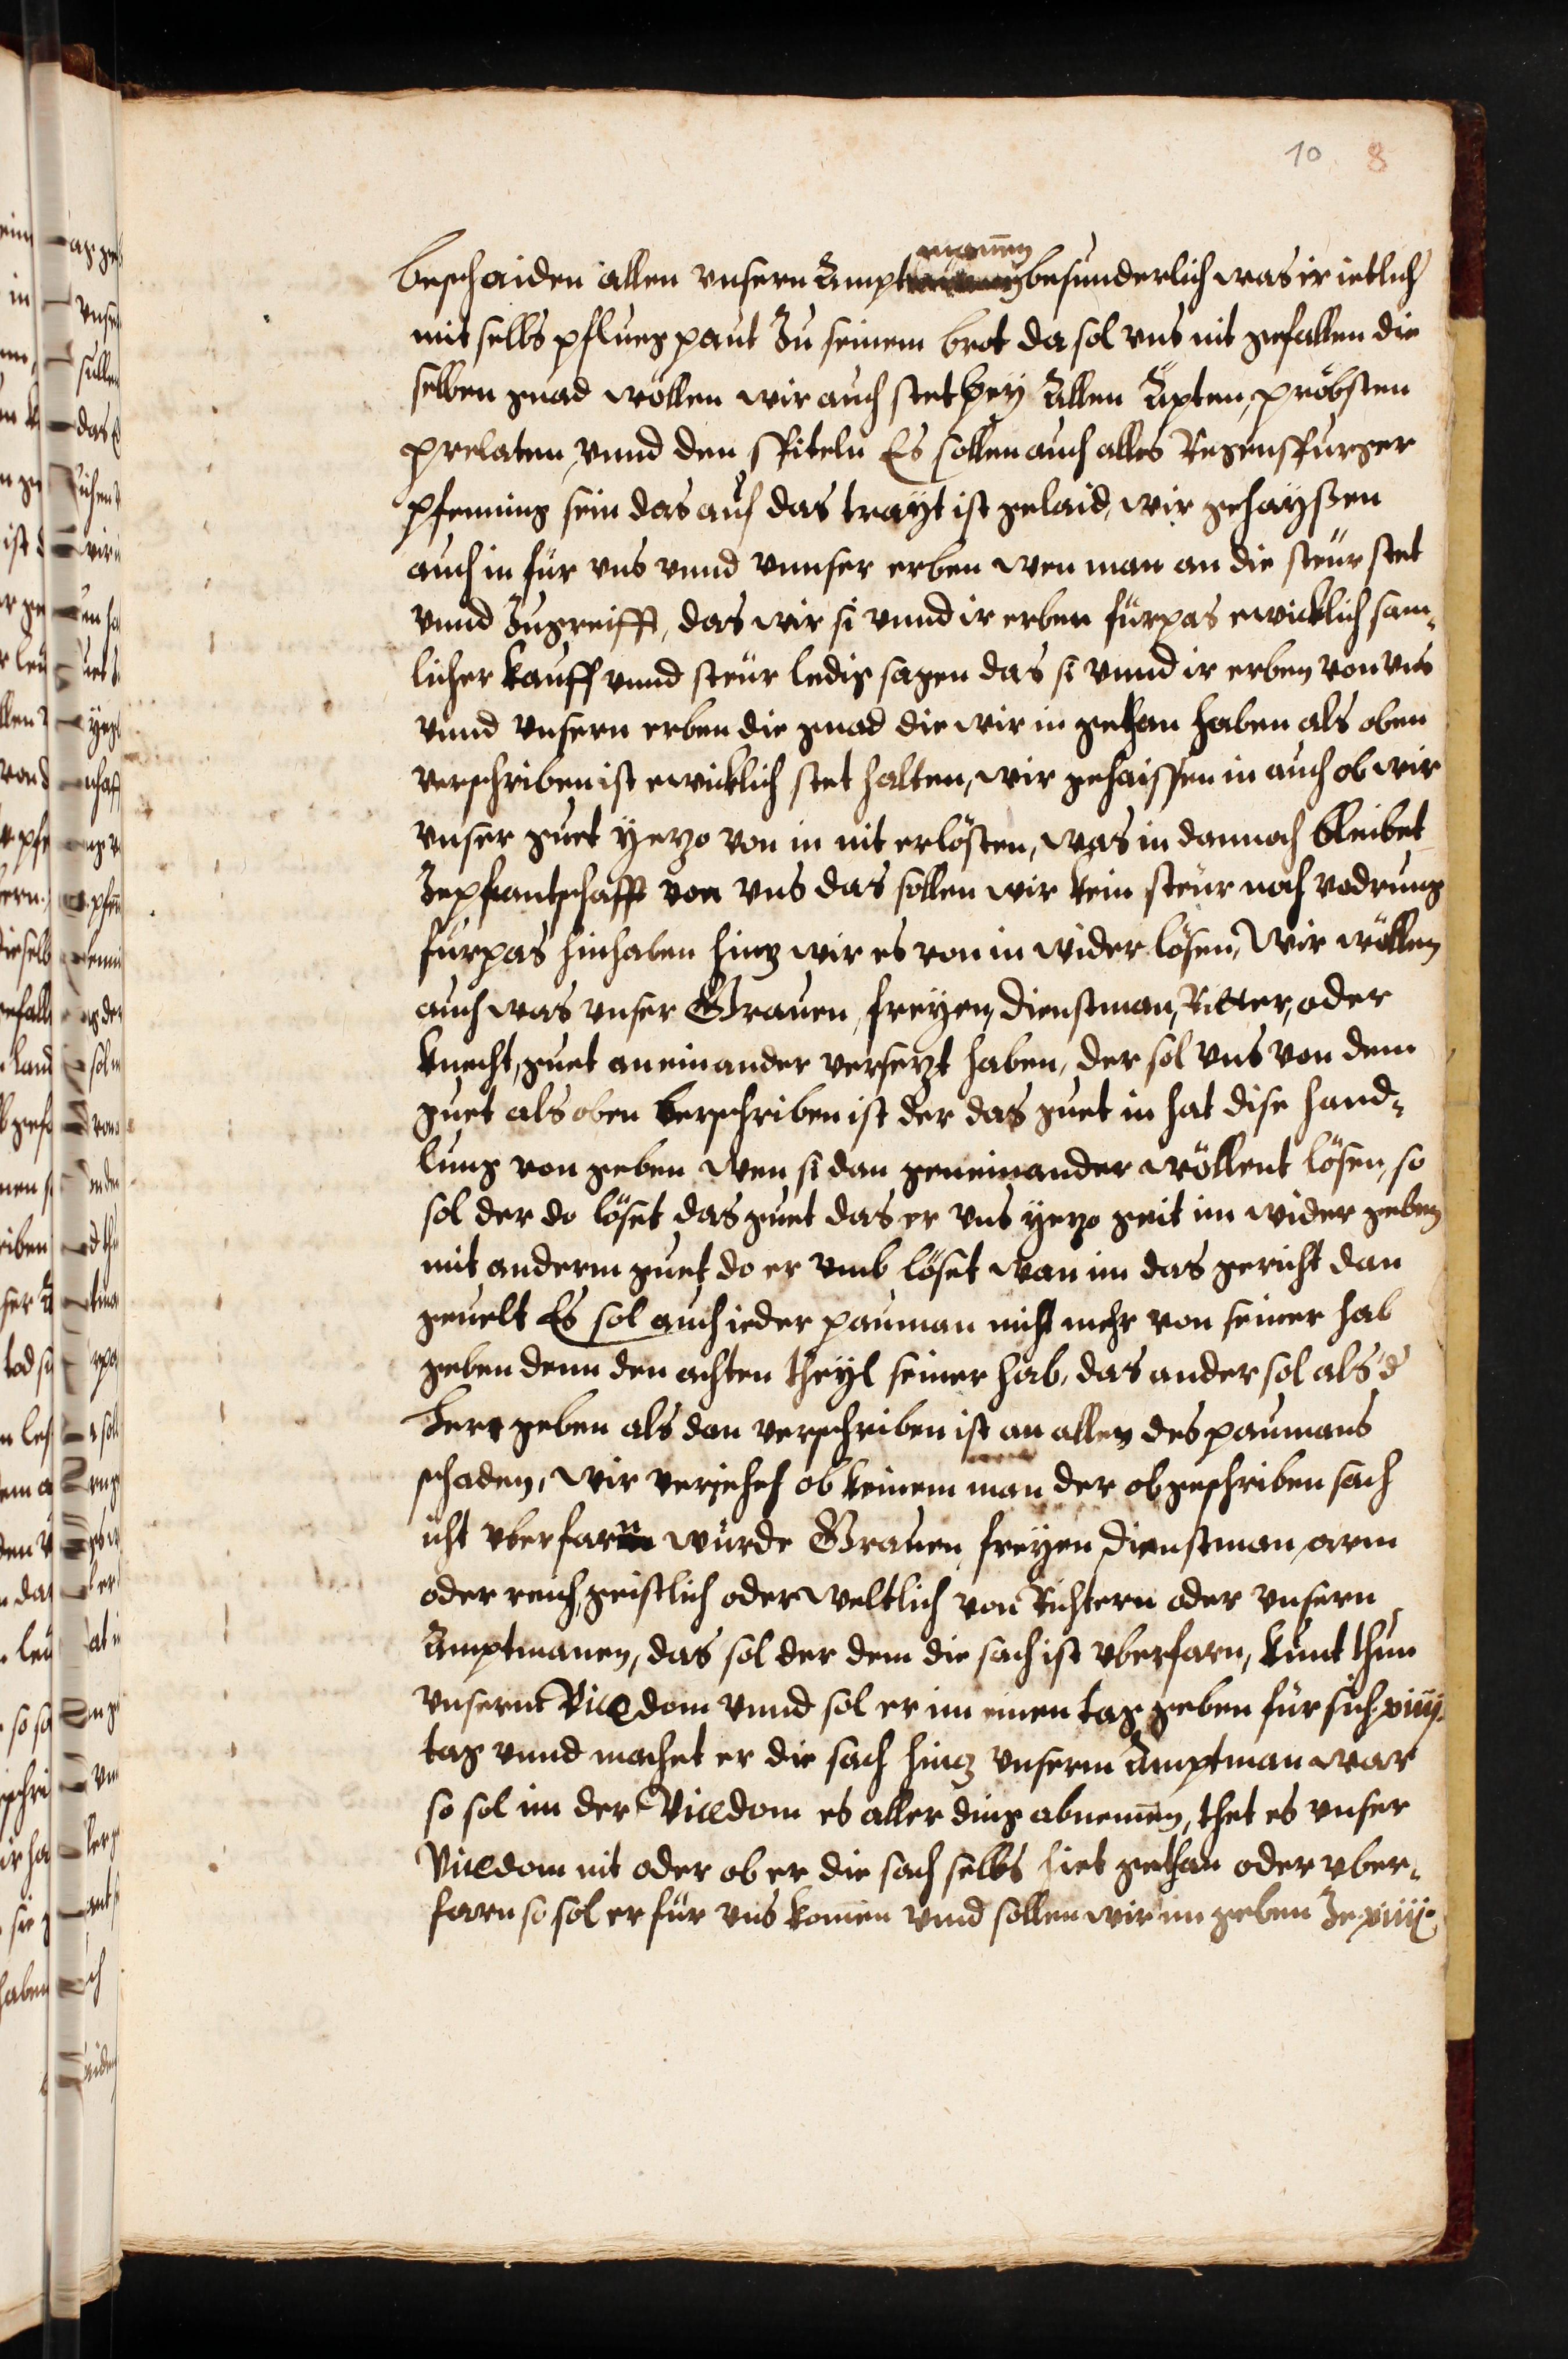 10 8
manen
beschaiden allen vnsern Ampt besunderlich was ir ietlich
mit selbs pflueg paut Zu seinem brot da sol vns nit gefallen die
selben gnad wöllen wir auch stet bey Allen Äpten, pröbsten
prelaten, vnnd den spiteln Es sollen auch alles Regenspurger
pfenning sein das auf das trayt ist gelaid, wir gehayßen
auch in für vns vnnd vnnser erben wen man an die steur stet
vnnd Zugreifft, das wir si vnnd ir erben fürpas ewicklich sam-
licher kauff vnnd steur ledig sagen das si vnnd ir erben von vns
vnnd vnsern erben die gnad die wir in gethan haben als oben
verschriben ist ewicklich stet halten, wir gehaissen in auch ob wir
vnser guet yetzo von in nit erlösten, was in dannoch bleibet
Ze pfantschafft von vns das sollen wir kein steur noch vodrung
fürpas hinhaben hintz wir es von in wider lösen, Wir wöllen
auch was vnser Grauen, freyen, dienstman, Ritter, oder
knecht, guet an einander versetzt haben, der sol vns von dem
guet als oben verschriben ist der das guet in hat dise hand-
lung von geben wen si dan geneinander wöllent lösen, so
sol der do löset das guet das er vns yetzo geit im wider geben
mit anderm guet do er vmb löset wan im das gericht dan
geuelt Es sol auch ieder pauman nicht mehr von seiner hab
geben denn den achten theyl seiner hab, das ander sol als d
Herr geben als dan verschriben ist an allen des paumans
schaden, wir veriehen ob keinem man der obgeschriben sach
icht vberfarn wurde Grauen, freyen dienstman, arm
oder reich, geistlich oder weltlich von Richtern oder vnsern
Amptmanen, das sol der dem die sach ist vberfarn, kunt thun
vnserm Vicedom vnnd sol er im einen tag geben für sich xiiij.
tag vnnd machet er die sach hintz vnserm Amptman war
so sol im der Vicedom es aller ding abnemen, thet es vnser
Vicedom nit oder ob er die sach selbs hiet gethan oder vber-
farn so sol er für vns komen vnnd sollen wir im geben Ze xiiij.